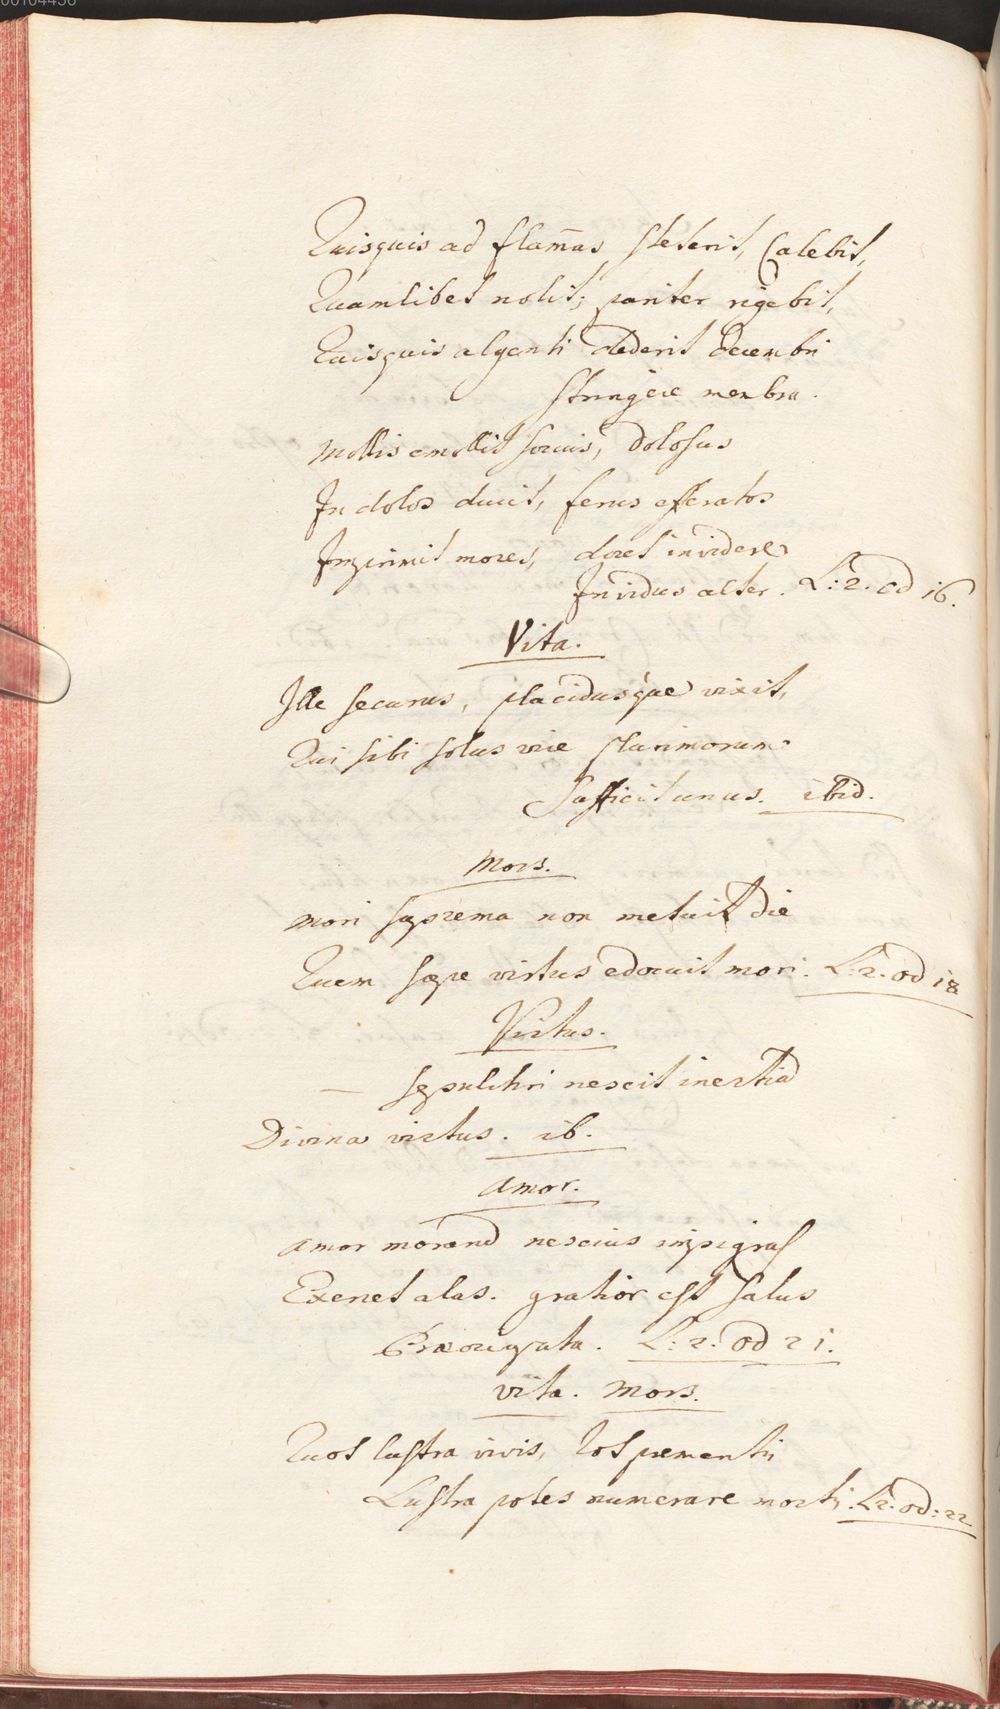 00104436
Quisquis ad flam̄as steterit, calebit,
Quamlibet nolit; pariter rigebit,
Quisquis algenti dederit decembri
Stringere membra.
Mollis emollit socius, dolosus
In dolos ducit, ferus efferatos
Imprimit mores, docet invidere
Invidus alter. L: 2. od 16.
Vita.
Ille securus, placidusque vixit,
Qui sibi solus vice plurimorum
Sufficit unus. ibid.
Mors.
Mori suprema non metuit die
Quem sæpe virtus edocuit mori. L: 2. od 18
Virtus.
— sepulchri nescit inertiã
Divina virtus. ib.
Amor.
Amor morand nescius impigras
Exeret alas. gratior est salus
Præorigata. L: 2. od 21.
Vita. Mors.
Quot lustra vivis, tot prementis
Lustra potes numerare mortis. L2. od: 22